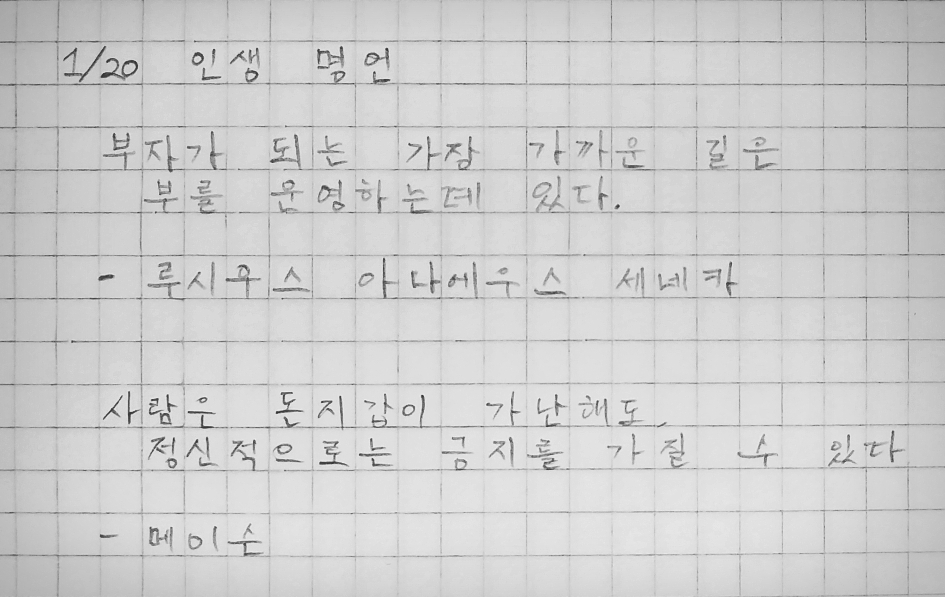 1/20 인생 명언
부자가 되는 가장 가까운 길은
부를 운영하는데 있다.
- 루시우스 아나에우스 세네카
사람은 돈지갑이 가난해도,
정신적으로는 긍지를 가질 수 있다
- 메이슨